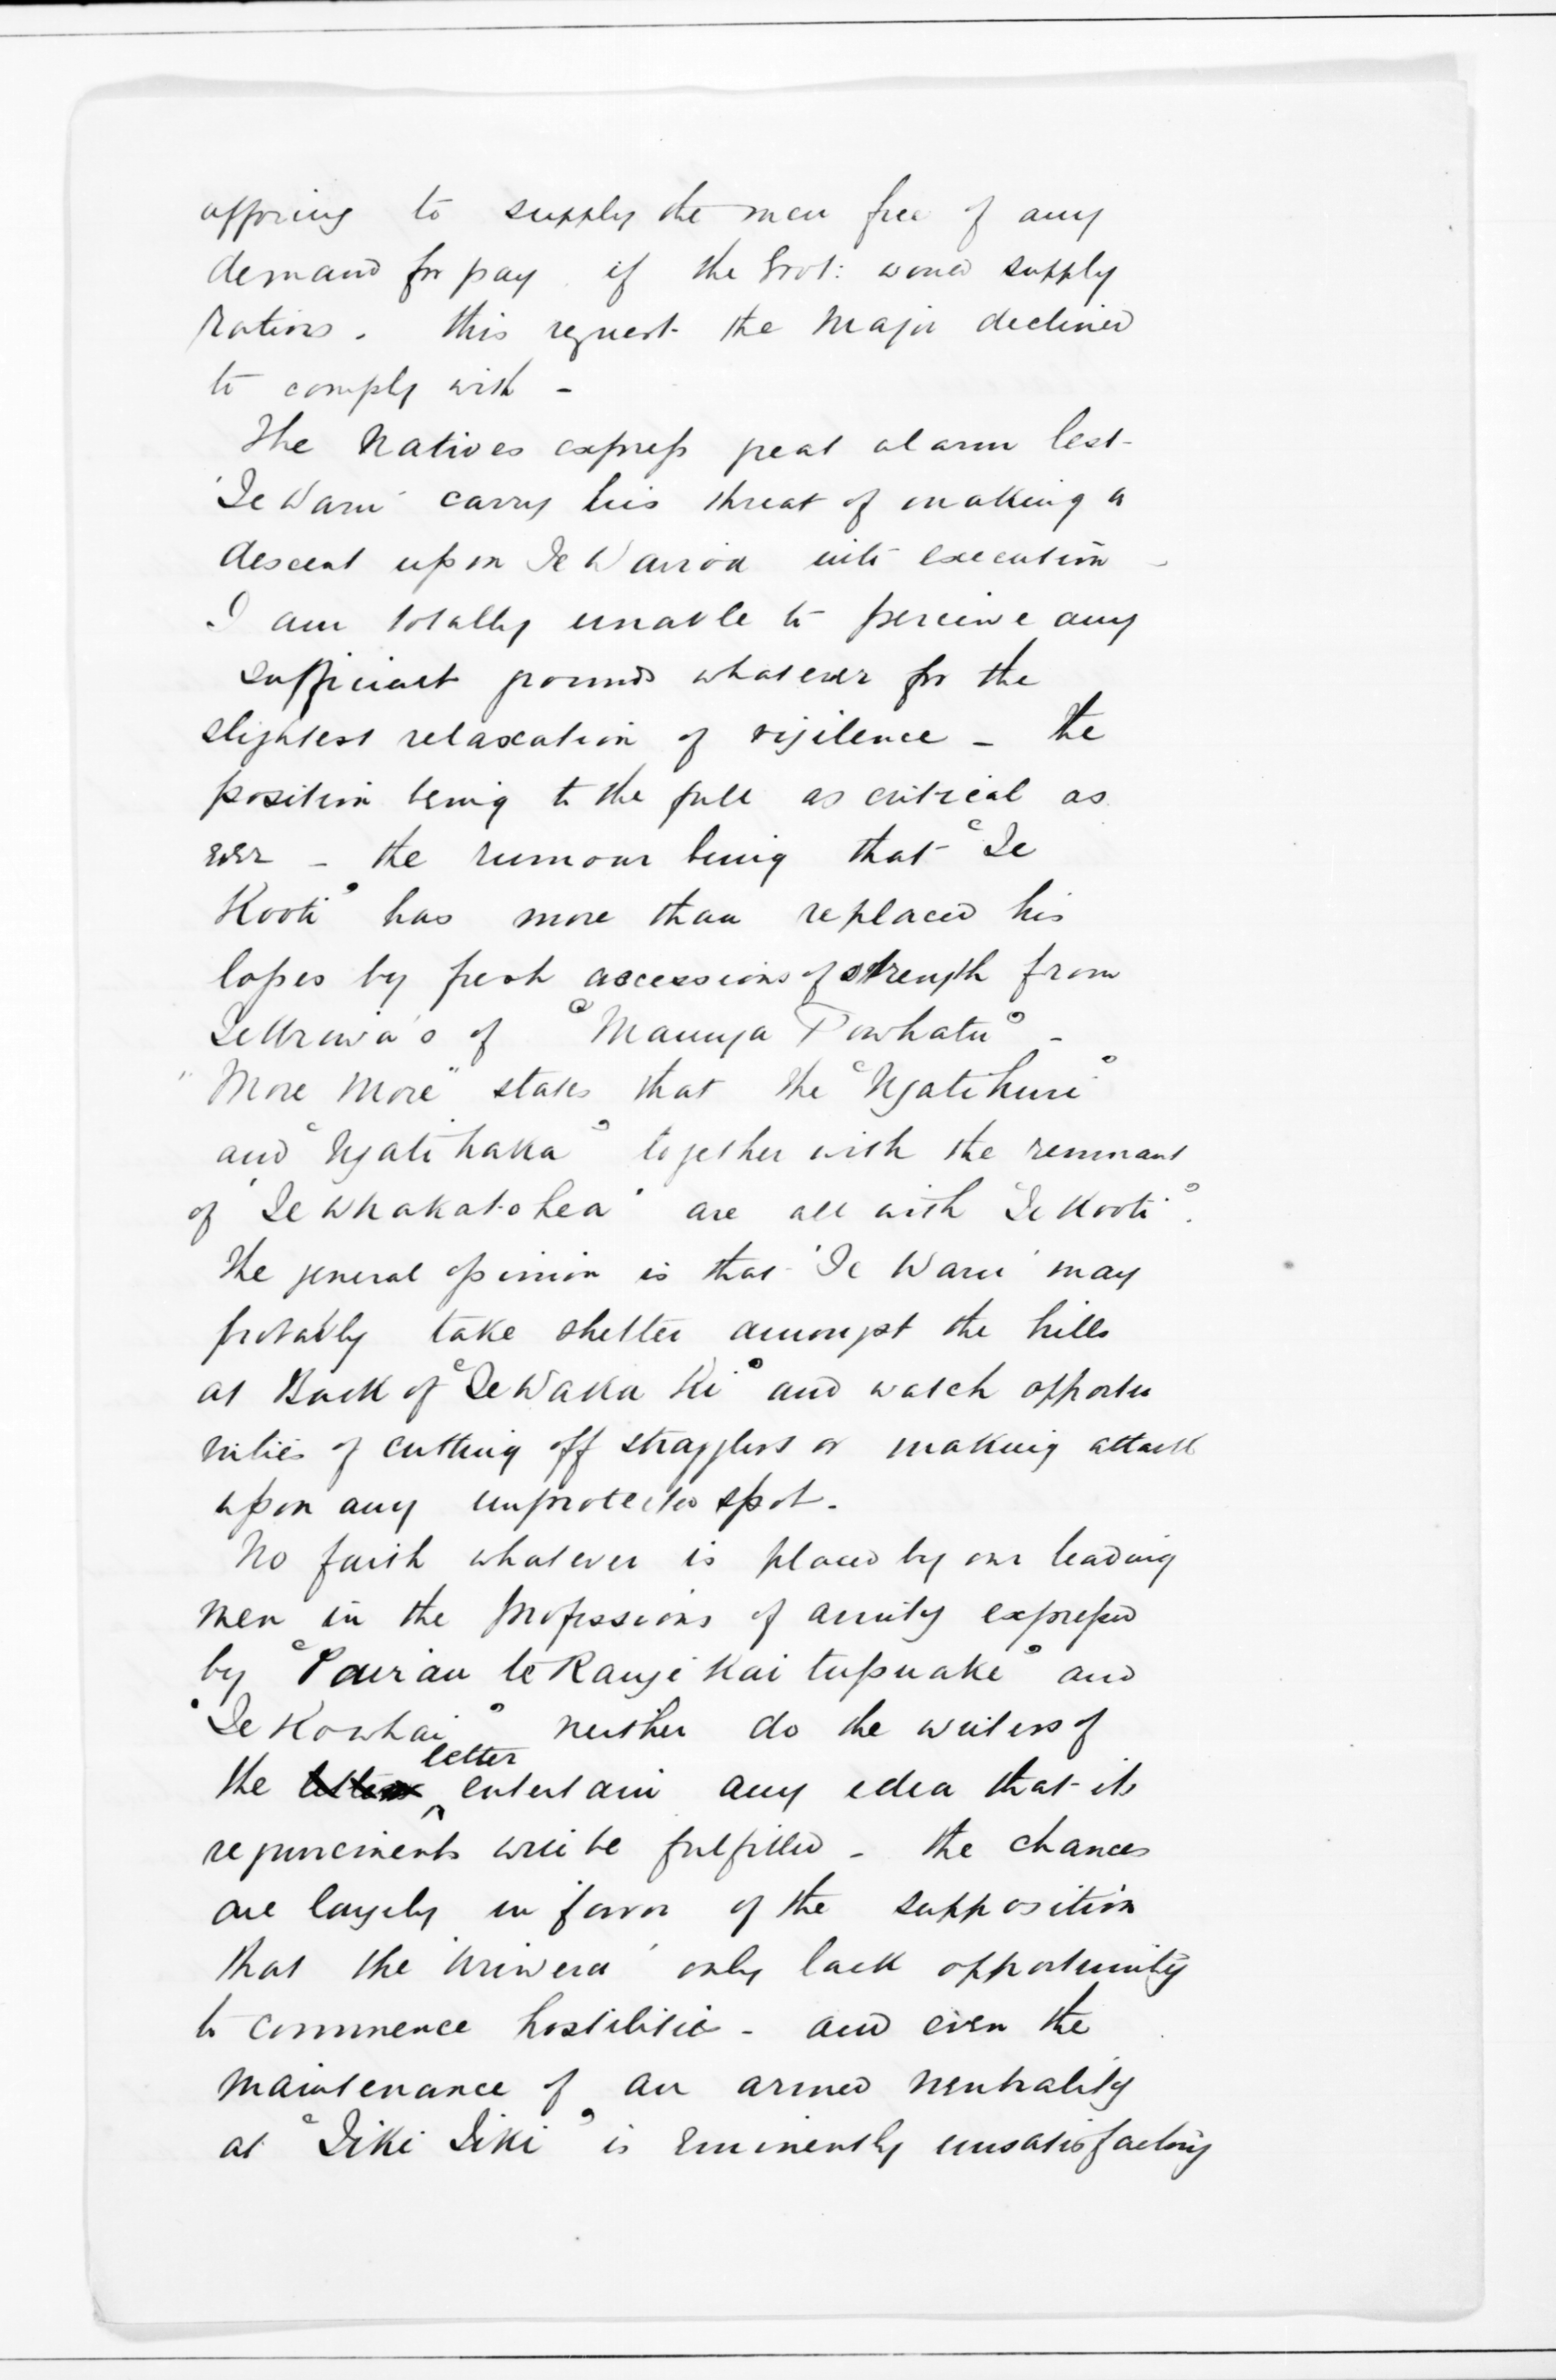 offering to supply the men free of any
demand for pay if the Govt: would supply
Rations. this request the Major declined
to comply with -
The Natives express great alarm lest
'Te Waru' carry his threat of making a
descent upon Te Wairoa into execution -
I am totally unable to perceive any
sufficient grounds whatever for the
slightest relaxation of vigilence - the
position being to the full as critical as
ever - the rumour being that "Te
Kooti" has more than replaced his
losses by fresh accessions of strength from
Te Urewa's of "Maunga Powhatu" -
"More More" states that the "Ngatihuri"
and "Ngatihaka" together with the remnant
of "Te Whakatohea" are all with "Te Kooti".
The general opinion is that 'Te Waru' may
probably take shelter amongst the hills
at Back of "Te Waka Ki" and watch opportu
nities of cutting off stragglers or making attack
upon any unprotected spot.
No faith whatever is placed by our leading
men in the professions of amity expressed
by "Paerau te Rangi Kai tupuake" and
"Te Kowhai" neither do the writers of
the letter entertain any idea that its
requirements will be fulfilled - the chances
are largely in favor of the supposition
that the 'Uriwera' only lack opportunity
to commence hostilities - and even the
maintenance of an armed neutrality
at "Tiki Tiki" is eminently unsatisfactory